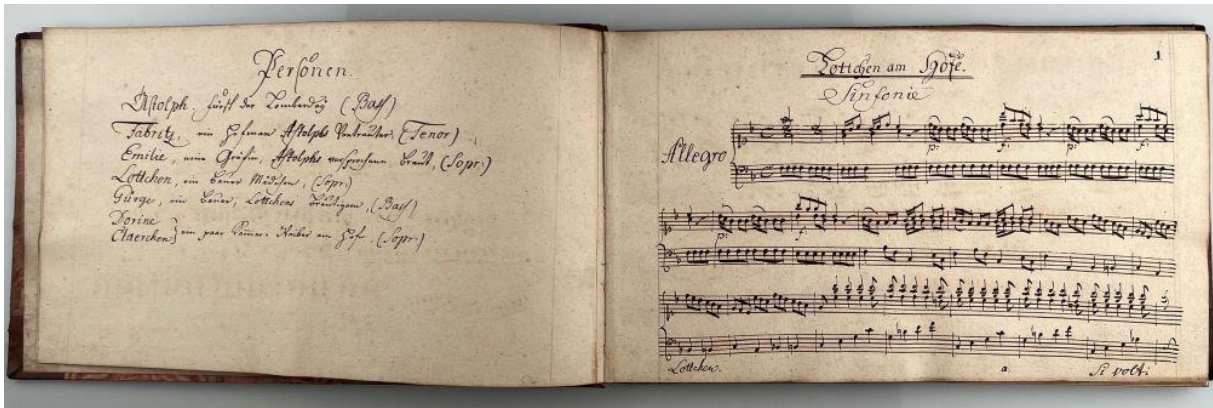 Personen.
Astolph, Fürst der Lombardey (Baß)
Fabritz, ein Hofman Astolphs Vertrauter, (Tenor)
Emilie, eine Gräfin, Astolphs versprochene Braut, (Sopr:)
Lottchen, ein Bauer Mädchen, (Sopr:)
Gürge, ein Bauer, Lottchens Bräutigam, (Baß)
Dorine
Claerchen } ein paar Cammer-Weiber am Hofe, (Sopr:)
1.
Lottchen am Hofe.
Sinfonie
Allegro
p: f: p: f:
p: f:
Lottchen. a. Si volt: